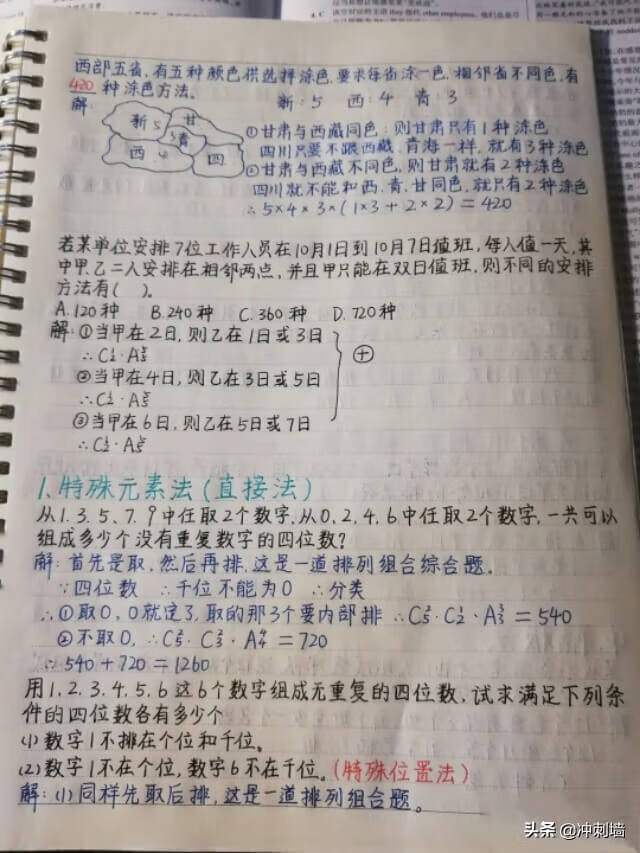 西部五省,有五种颜色供选择涂色,要求每省涂一色,相邻省不同色,有
420种涂色方法。
新:5 西:4 青:3
解:
新5 甘
3青
西 4 四
①甘肃与西藏同色:则甘肃只有1种涂色
四川只要不跟西藏、青海一样,就有3种涂色
②甘肃与西藏不同色,则甘肃就有2种涂色
四川就不能和西、青、甘同色,就只有2种涂色
∴5×4×3×(1×3+2×2)=420
若某单位安排7位工作人员在10月1日到10月7日值班,每人值一天,其
中甲、乙二人安排在相邻两点,并且甲只能在双日值班,则不同的安排
方法有( )。
A.120种 B.240种 C.360种 D.720种
解:①当甲在2日,则乙在1日或3日
∴C½·A⁵₅
②当甲在4日,则乙在3日或5日
∴C½·A⁵₅
③当甲在6日,则乙在5日或7日
∴C½·A⁵₅
⊕
1、特殊元素法(直接法)
从1、3、5、7、9中任取2个数字,从0、2、4、6中任取2个数字,一共可以
组成多少个没有重复数字的四位数?
解:首先是取,然后再排,这是一道排列组合综合题。
∵四位数 ∴千位不能为0 ∴分类
∴①取0,0就定3,取的那3个要内部排 ∴C²₅·C½·A³₃=540
②不取0,∴C²₅·C²₃·A⁴₄=720
∴540+720=1260
用1、2、3、4、5、6这6个数字组成无重复的四位数,试求满足下列条
件的四位数各有多少个
(1)数字1不排在个位和千位。
(2)数字1不在个位,数字6不在千位。(特殊位置法)
解:(1)同样先取后排,这是一道排列组合题。
头条 @冲刺墙